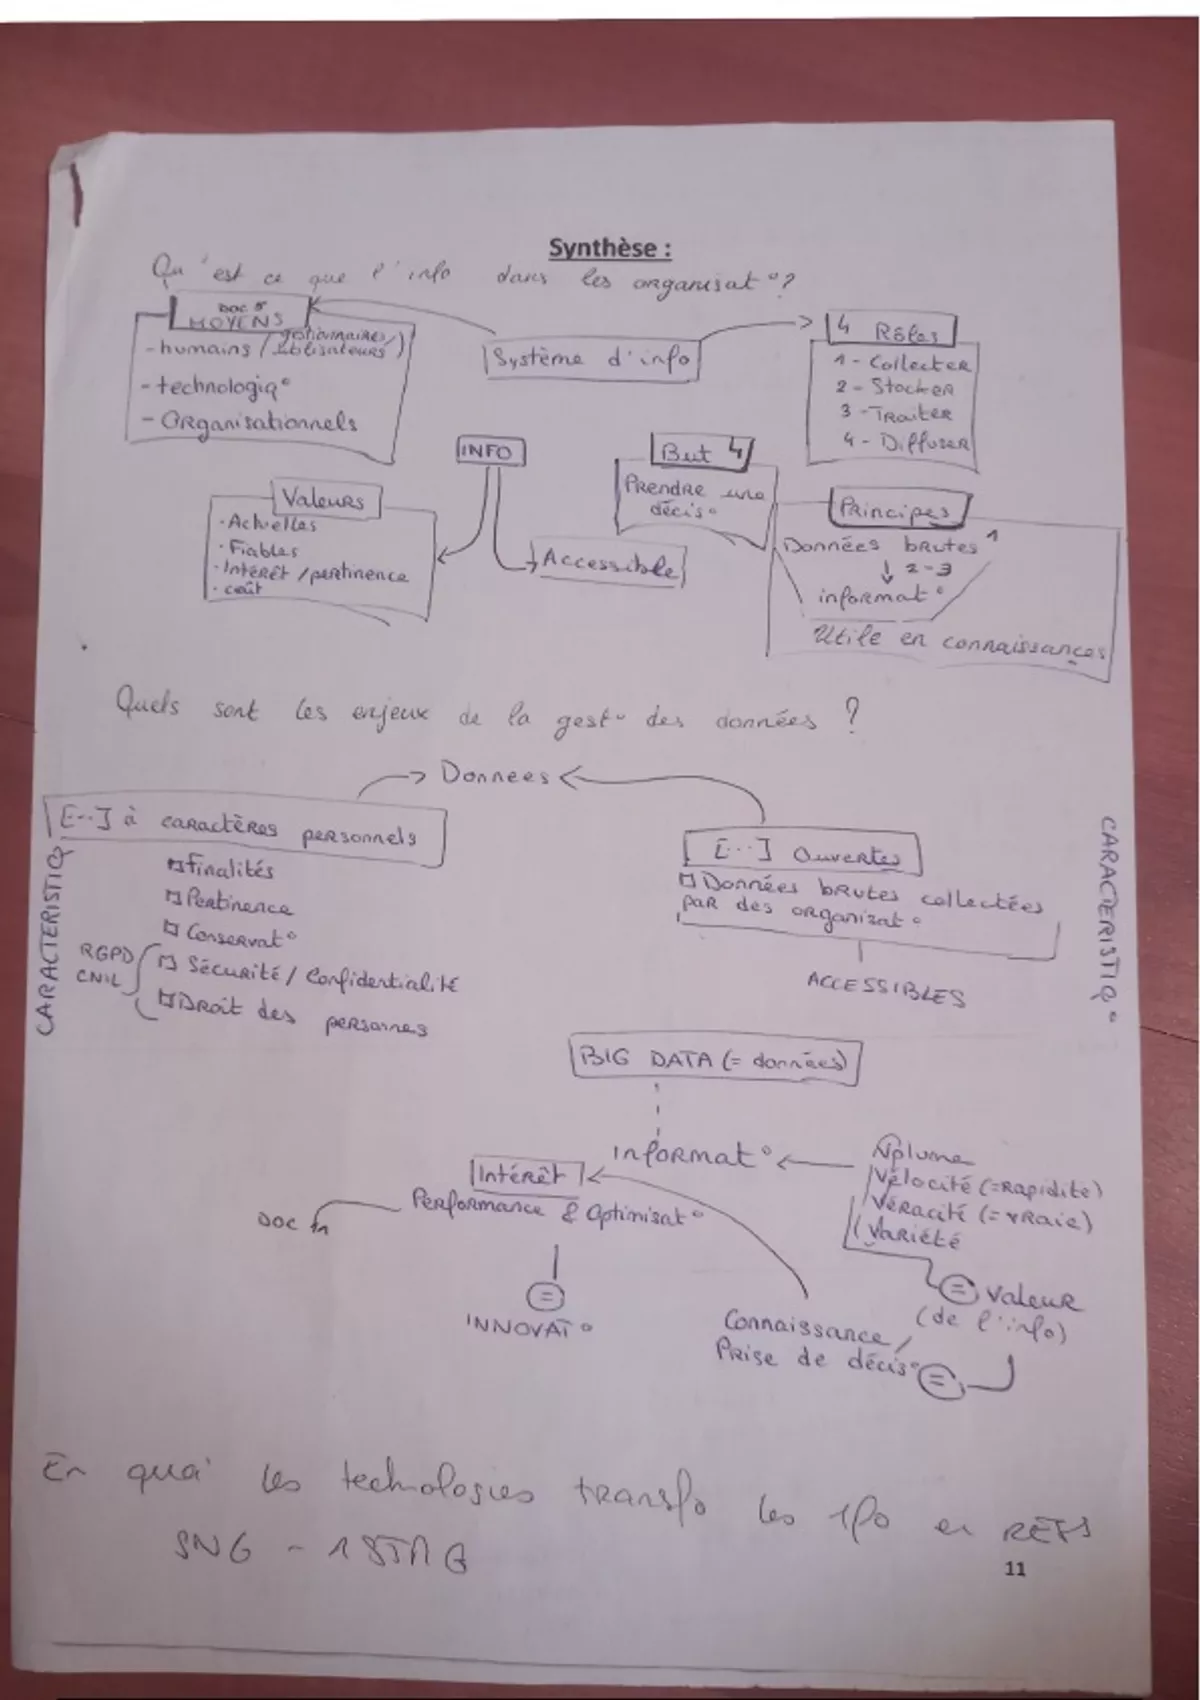 Synthèse :
Qu'est ce que l'info dans les organisat°?
DOC 5
MOYENS
- humains (gestionnaires/
utilisateurs)
- technologiq°
- ORganisationnels
Système d'info
4 Rôles
1 - Collecter
2 - Stocker
3 - TRaiter
4 - Diffuser
INFO
But 4
PRendRe une
décis°
Valeurs
· Actuelles
· Fiables
· Intérêt / pertinence
· coût
Accessible
Principes
Données bRutes 1
2-3
informat°
Utile en connaissances
Quels sont les enjeux de la gest° des données ?
Donnees
[...] à caractères personnels
CARACTERISTIQ
Finalités
Pertinence
Conservat°
RGPD
CNIL
Sécurité / Confidentialité
DRoit des personnes
[...] Ouvertes
Données bRutes collectées
paR des organisat°
ACCESSIBLES
CARACTERISTIQ°
BIG DATA (= données)
informat°
Volume
Vélocité (=Rapidité)
VéRacité (= vRaie)
Variété
Intérêt
PerfoRmance & Optimisat°
DOC 11
=
INNOVAT°
= valeuR
(de l'info)
Connaissance /
PRise de décis° =
En quoi les technologies tRansfo les
en
SNG - 1 STMG
11